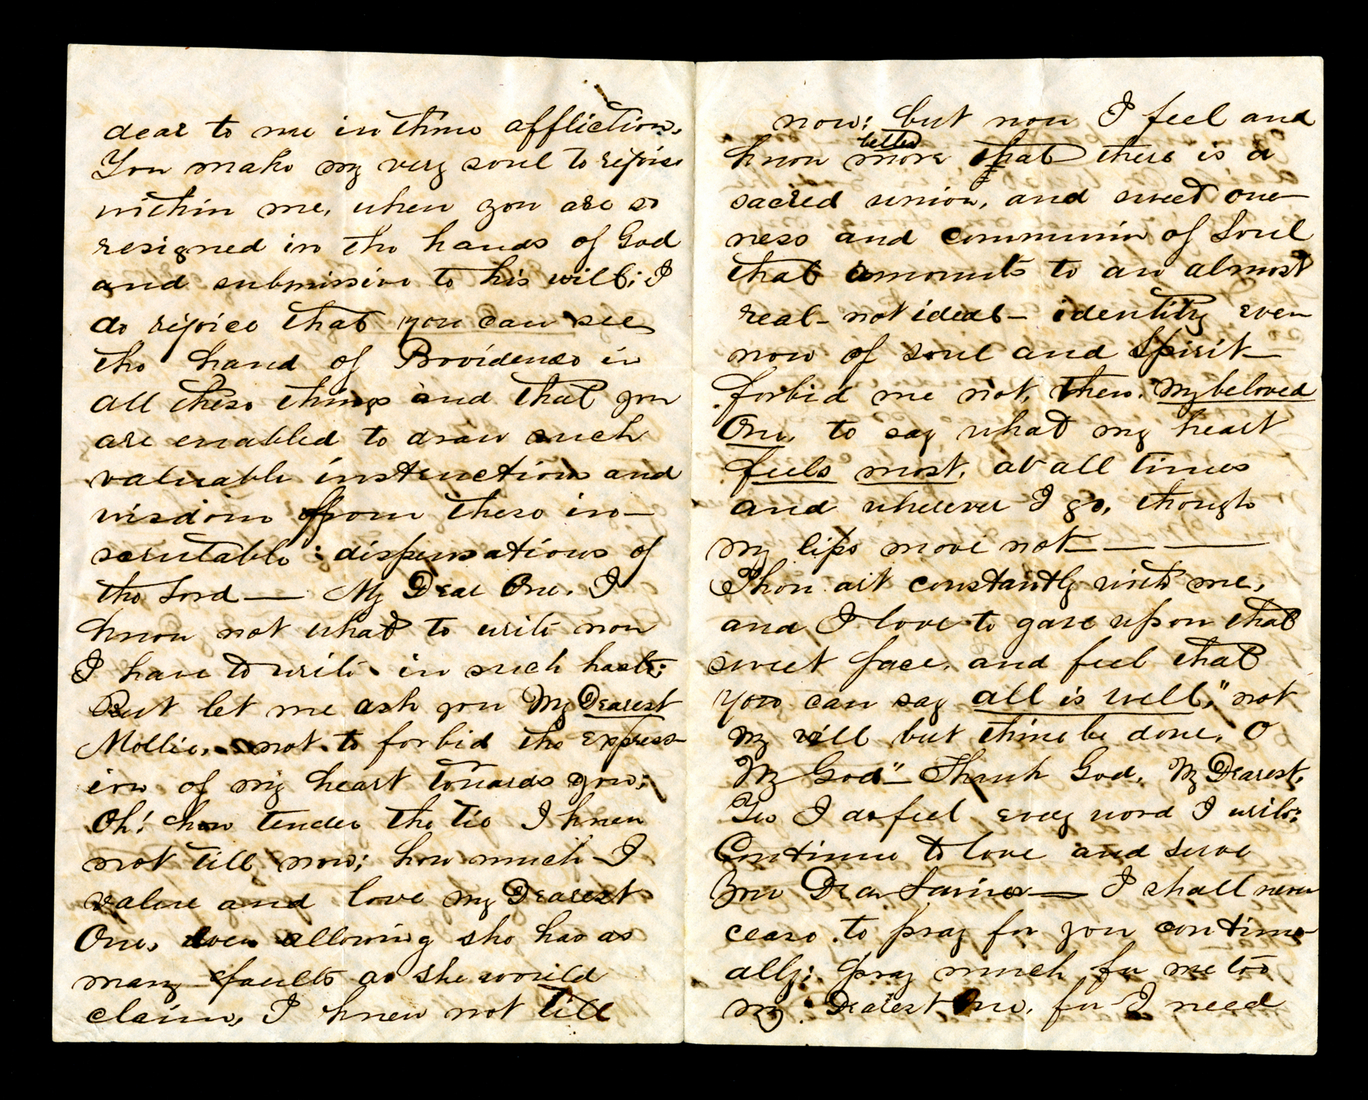 dear to me in thine affliction.
You make my very soul to rejoice
within me, when you are so
resigned in the hands of God
and submissive to his will; I
do rejoice that you can see
the hand of Providence in
all these things and that you
are enabled to draw such
valuable instruction and
wisdom from these in-
scrutable dispensations of
the Lord — My Dear One, I
know not what to write now
I have to write in such haste;
But let me ask you My Dearest
Mollie, not to forbid the express-
ion of my heart towards you;
Oh! how tender the tie I knew
not till now; how much I
value and love my Dearest
One, even allowing she has as
many faults as she would
claim, I knew not till
now; but now I feel and
know better more that there is a
sacred union, and sweet one-
ness and communion of Soul
that amounts to an almost
real - not ideal - identity even
now of soul and spirit —
forbid me not, then, My beloved
One, to say what my heart
feels most, at all times
and wherever I go, though
my lips move not — — —
Thou art constantly with me,
and I love to gaze upon that
sweet face, and feel that
you can say all is well," not
my will but thine be done, O
My God" — Thank God, My Dearest,
I do feel every word I write;
Continue to love and serve
our Dear Savior — I shall never
cease to pray for you continu-
ally; pray much for me too
my Dearest One, for I need